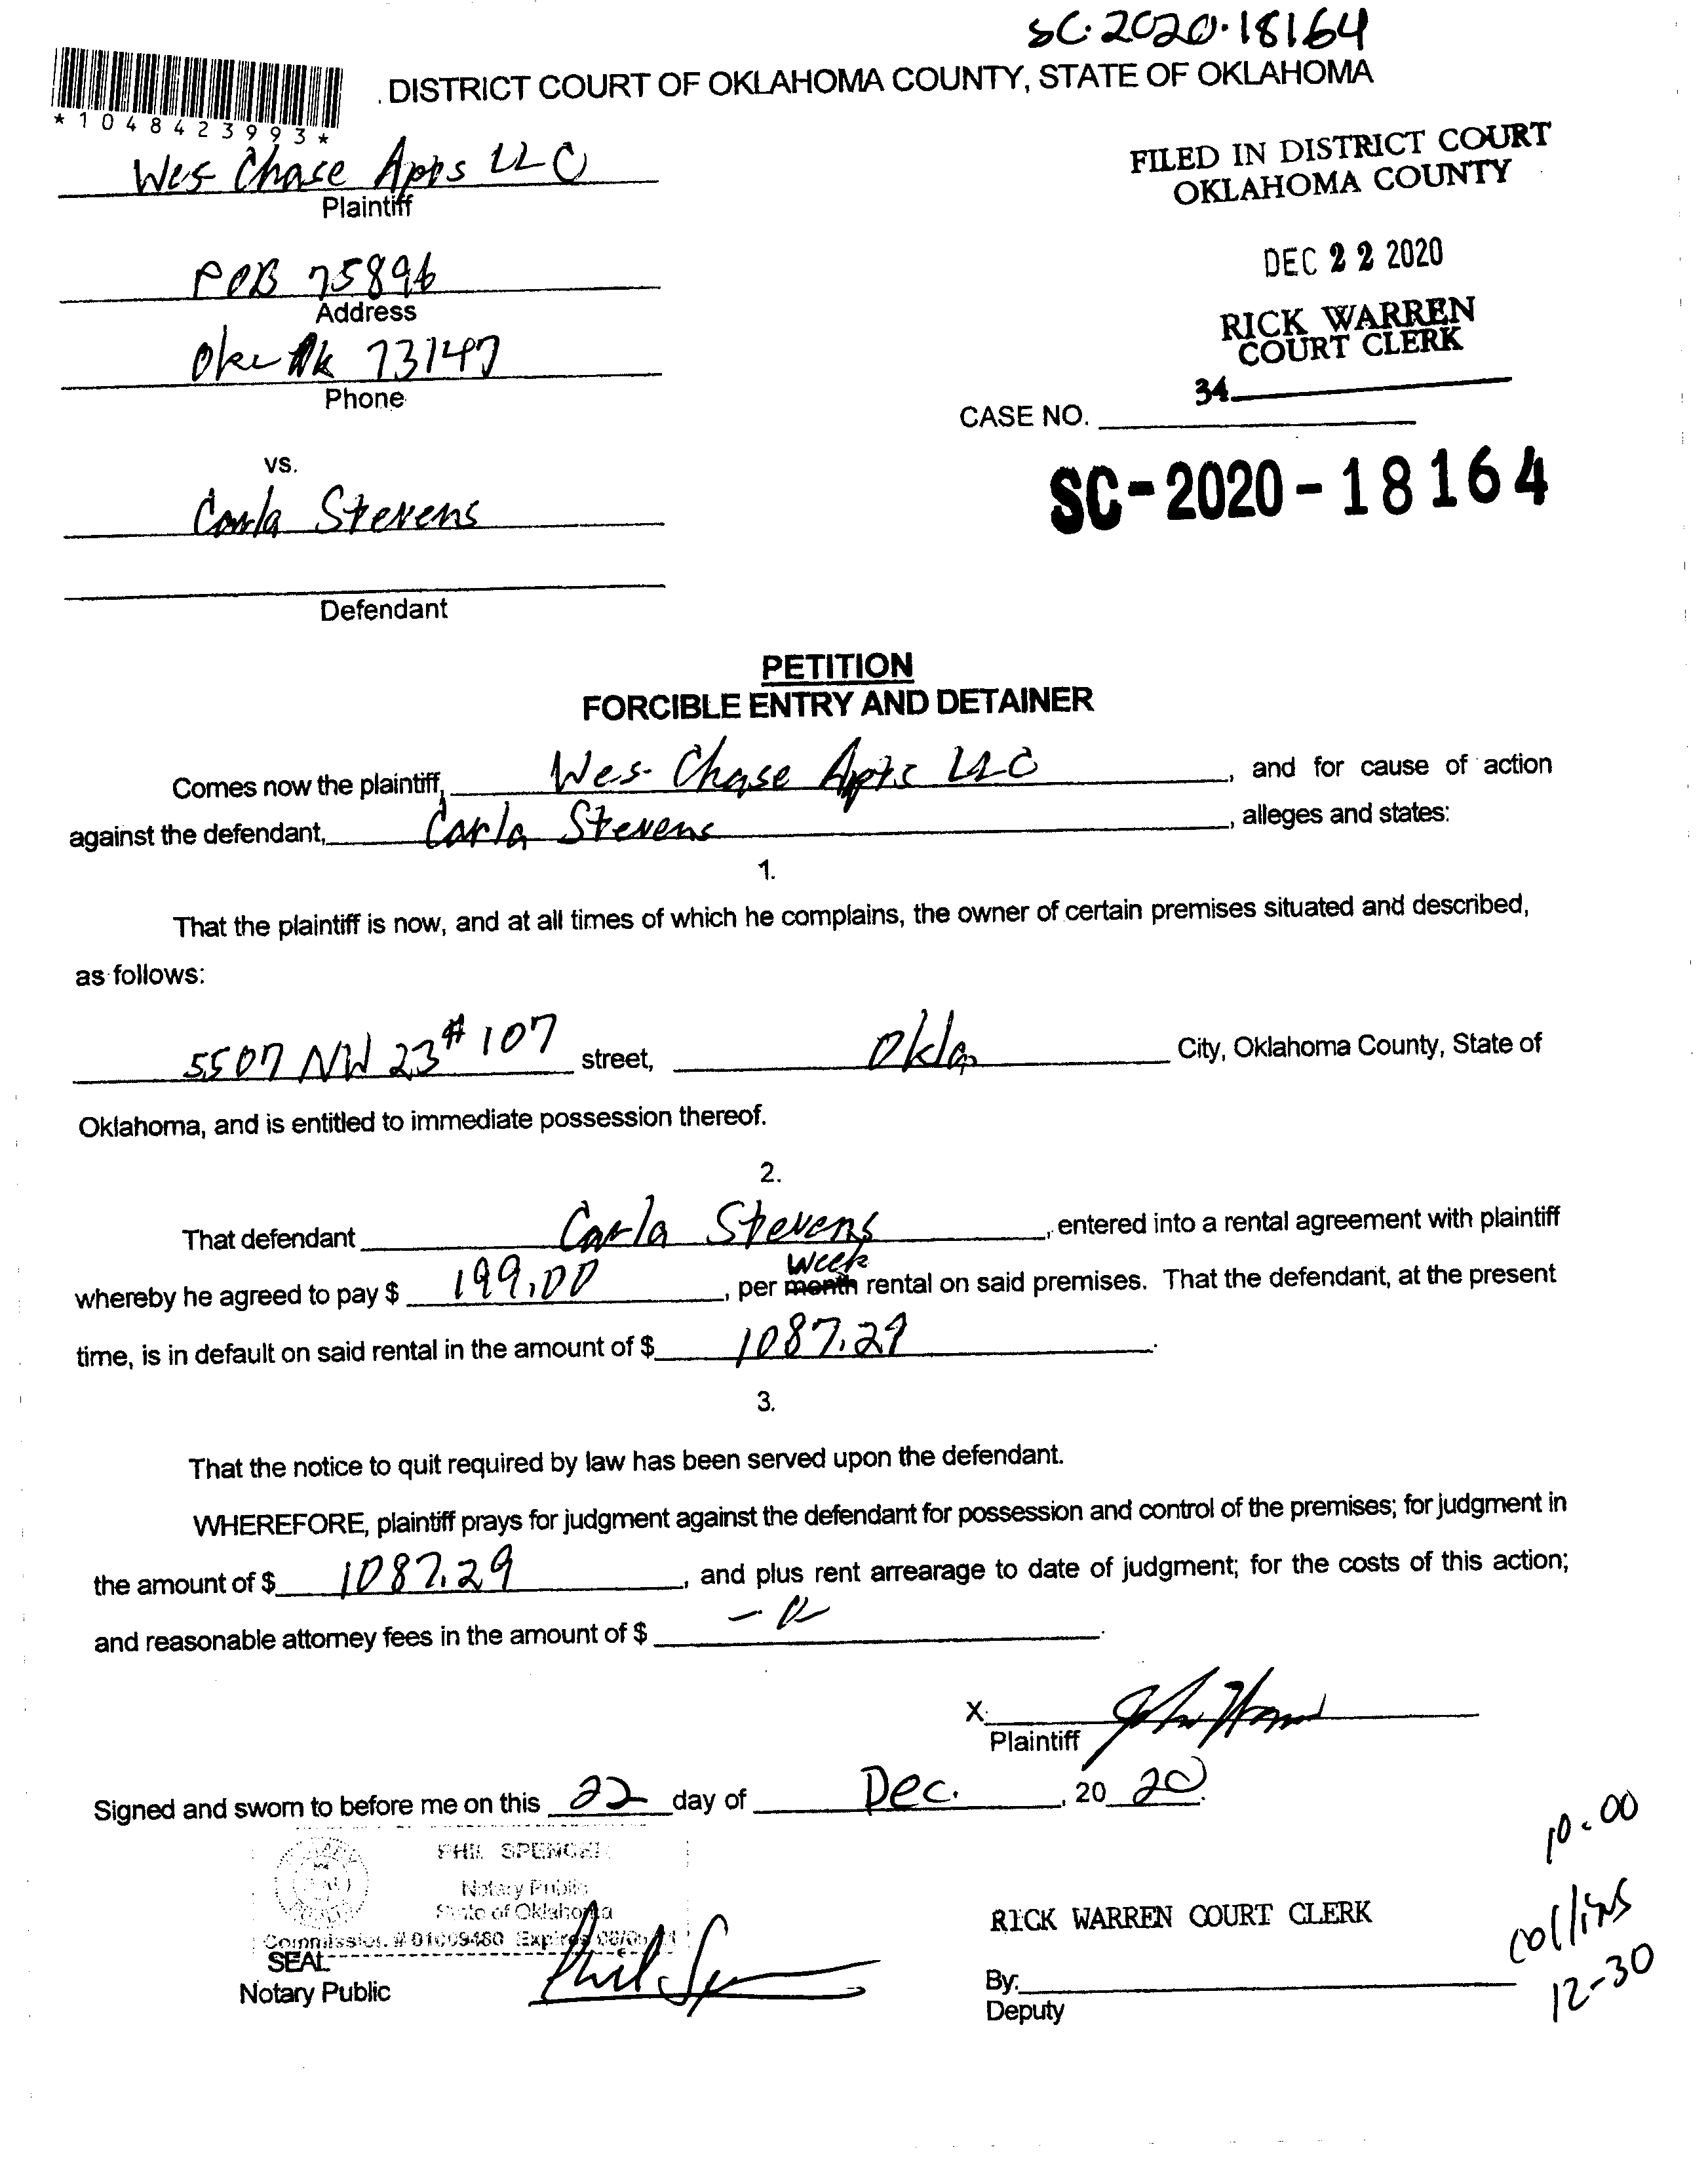 SC-2020-18164
DISTRICT COURT OF OKLAHOMA COUNTY, STATE OF OKLAHOMA
*1048423993*
Wes Chase Apts LLC
Plaintiff
FILED IN DISTRICT COURT
OKLAHOMA COUNTY
POB 75896
Address
DEC 22 2020
Okc Ok 73147
Phone
RICK WARREN
COURT CLERK
34
CASE NO.
SC-2020-18164
vs.
Carla Stevens
Defendant
PETITION
FORCIBLE ENTRY AND DETAINER
Comes now the plaintiff, Wes Chase Apts LLC, and for cause of action
against the defendant, Carla Stevens, alleges and states:
1.
That the plaintiff is now, and at all times of which he complains, the owner of certain premises situated and described,
as follows:
5507 NW 23 #107 street, Okla City, Oklahoma County, State of
Oklahoma, and is entitled to immediate possession thereof.
2.
That defendant Carla Stevens, entered into a rental agreement with plaintiff
week
whereby he agreed to pay $ 199.00, per month rental on said premises. That the defendant, at the present
time, is in default on said rental in the amount of $ 1087.29.
3.
That the notice to quit required by law has been served upon the defendant.
WHEREFORE, plaintiff prays for judgment against the defendant for possession and control of the premises; for judgment in
the amount of $ 1087.29, and plus rent arrearage to date of judgment; for the costs of this action;
and reasonable attorney fees in the amount of $
X
Plaintiff
Signed and sworn to before me on this 22 day of Dec., 20 20.
PHIL SPENCER
Notary Public
State of Oklahoma
Commission # 01009480 Expires
SEAL
Notary Public
Phil
RICK WARREN COURT CLERK
By:
Deputy
10:00
Collins
12-30